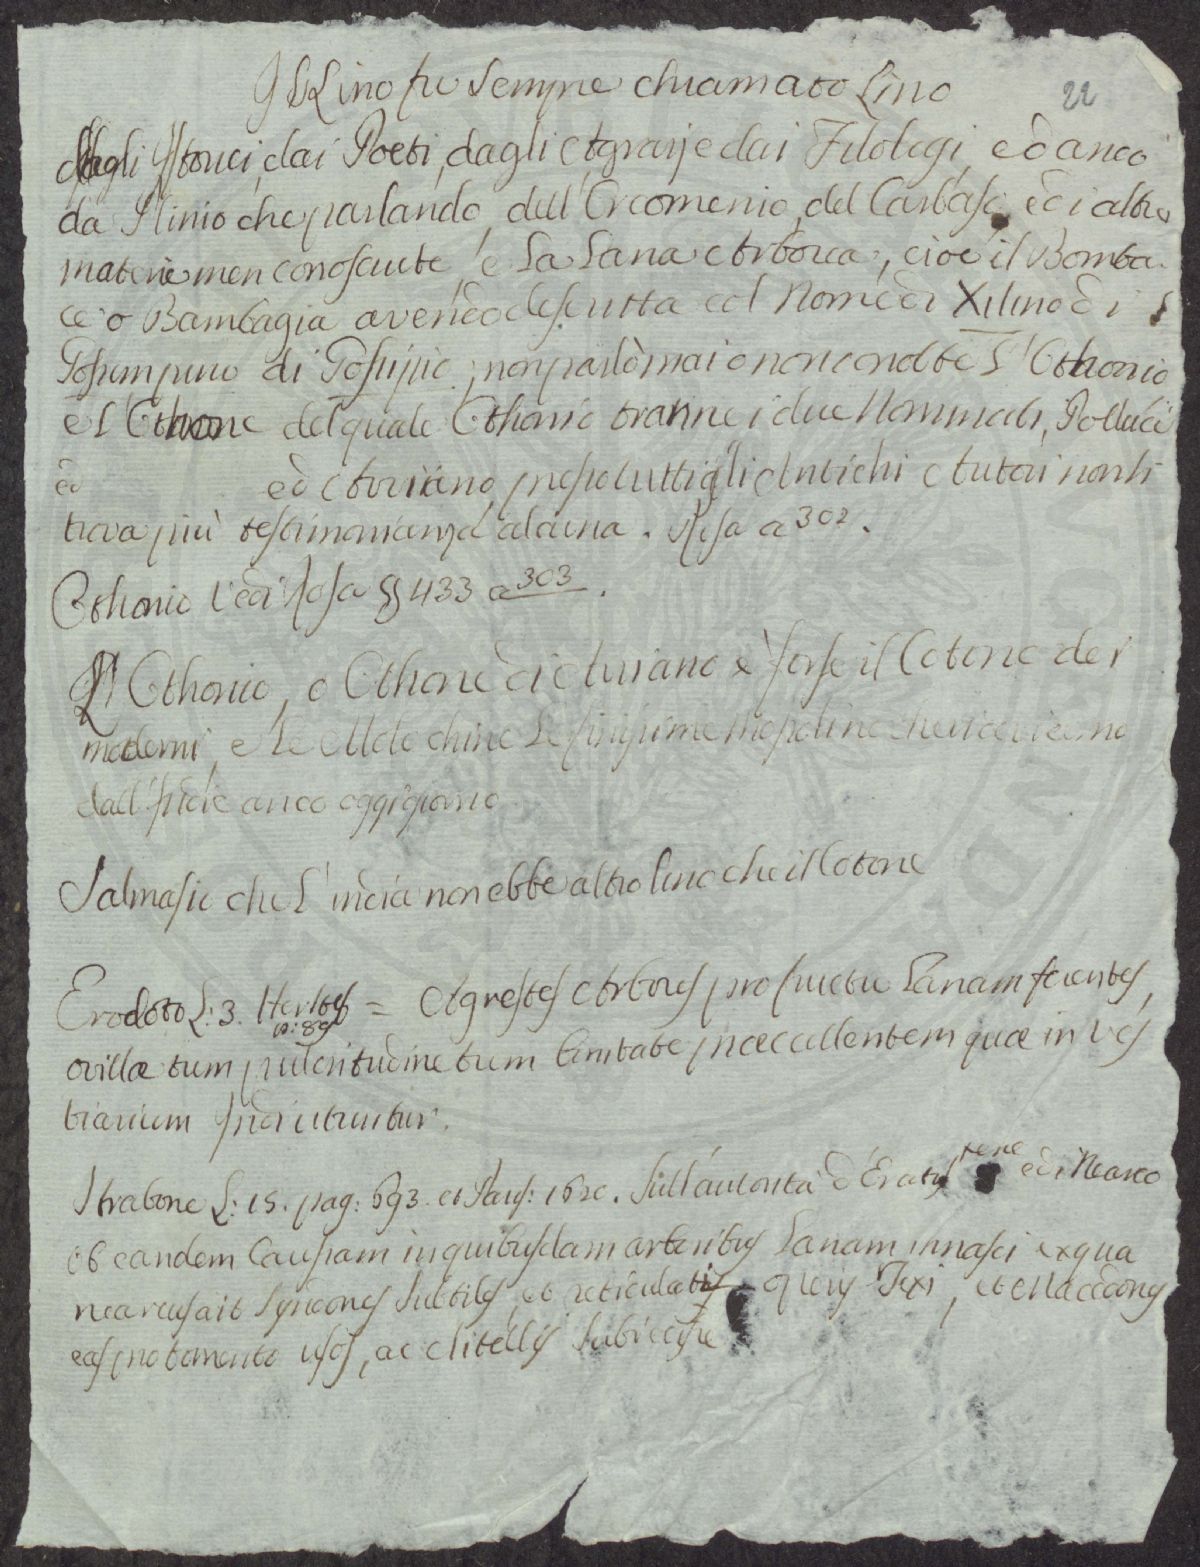 Il Lino fu sempre chiamato Lino
22
dagli Istorici, dai Poeti, dagli Agrarj e dai Filologi, ed anco
da Plinio che parlando, dell'Orcomenio, del Carbaso, ed i altre
materie men conosciute, e La Lana Arborea, cioè il Bomba
ce o Bambagia avendo descritta col Nome di Xilino di
di Gossipio, non parlò mai o non conobbe L'Othonio
e L'Othone del quale Othonio tranne i due Nominati, Polluce
ed ed Arriano, presso tutti gli Antichi Autori non si
trova più testimonianza alcuna. Rosa a 302.
Othonio Vedi Rosa §§ 433 a 303.
L'Othonio, o Othone di Arriano è forse il Cotone dei
moderni, e Le Molochine Le finissime Mussoline che riceviamo
dall'Indie anco oggigiorno
Salmasio che L'india non ebbe altro lino che il Cotone
Erodoto L: 3. = Agrestes Arbores pro fructu Lanam ferentes,
ovillæ tum pulcritudine tum bonitate præcellentem quæ in ves
tiarium Indi utuntur.
Strabone L: 15. pag: 693. et Paris: 1620. Sull'autorità d'Eratos tene e di Nearco
ob eandem Causam in quibusdam arboribus Lanam innasci ex qua
nearcus ait Syndones Subtiles, et reticulatis Texi, et Macedones
eas pro tomento usos, ac clitellis Subiecisse